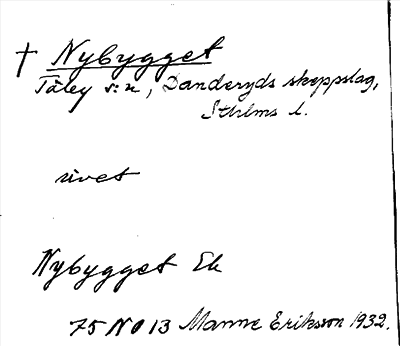 † Nybygget
Täby s:n, Danderyds skeppslag,
Sthlms l.
rivet
Nybygget Ek
75 NO 13 Manne Eriksson 1932.